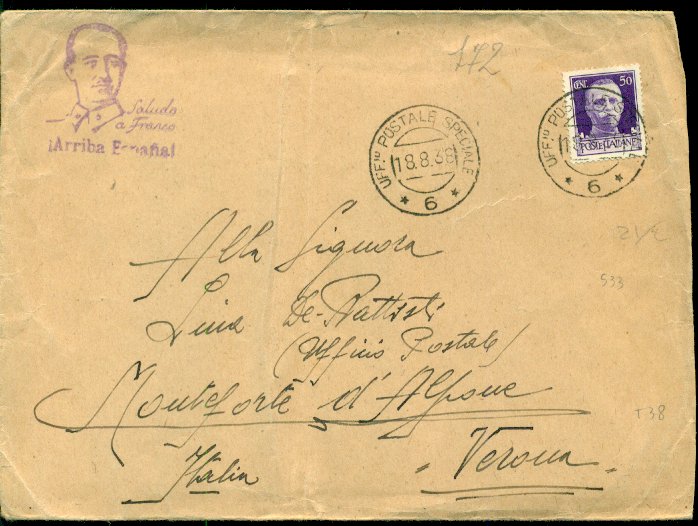 172
Saludo
a Franco
¡Arriba España!
UFF.IO POSTALE SPECIALE
18.8.38
* 6 *
CENT. 50
POSTE ITALIANE
UFF.IO POSTALE
* 6 *
Alla Signora
Lina De-Battisti
(Ufficio Postale)
533
Monteforte d'Alpone
T38
Italia "Verona"